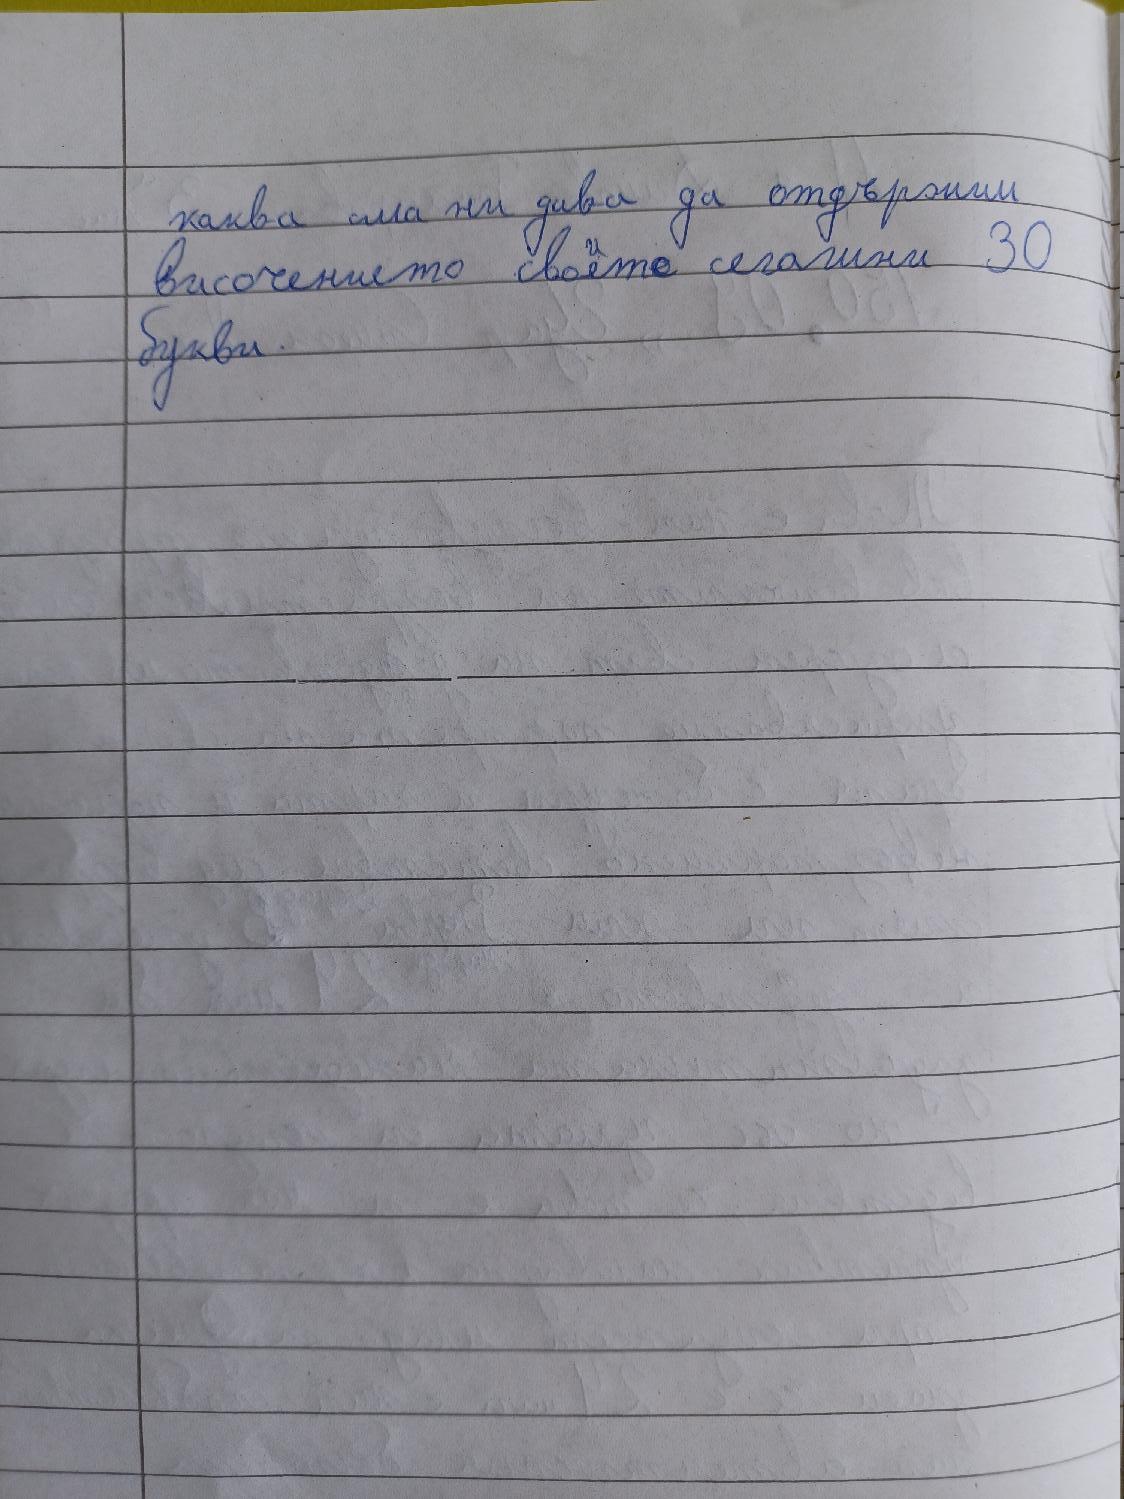 каква сила ни дава да отдържим
височението своите сегашни 30
букви.